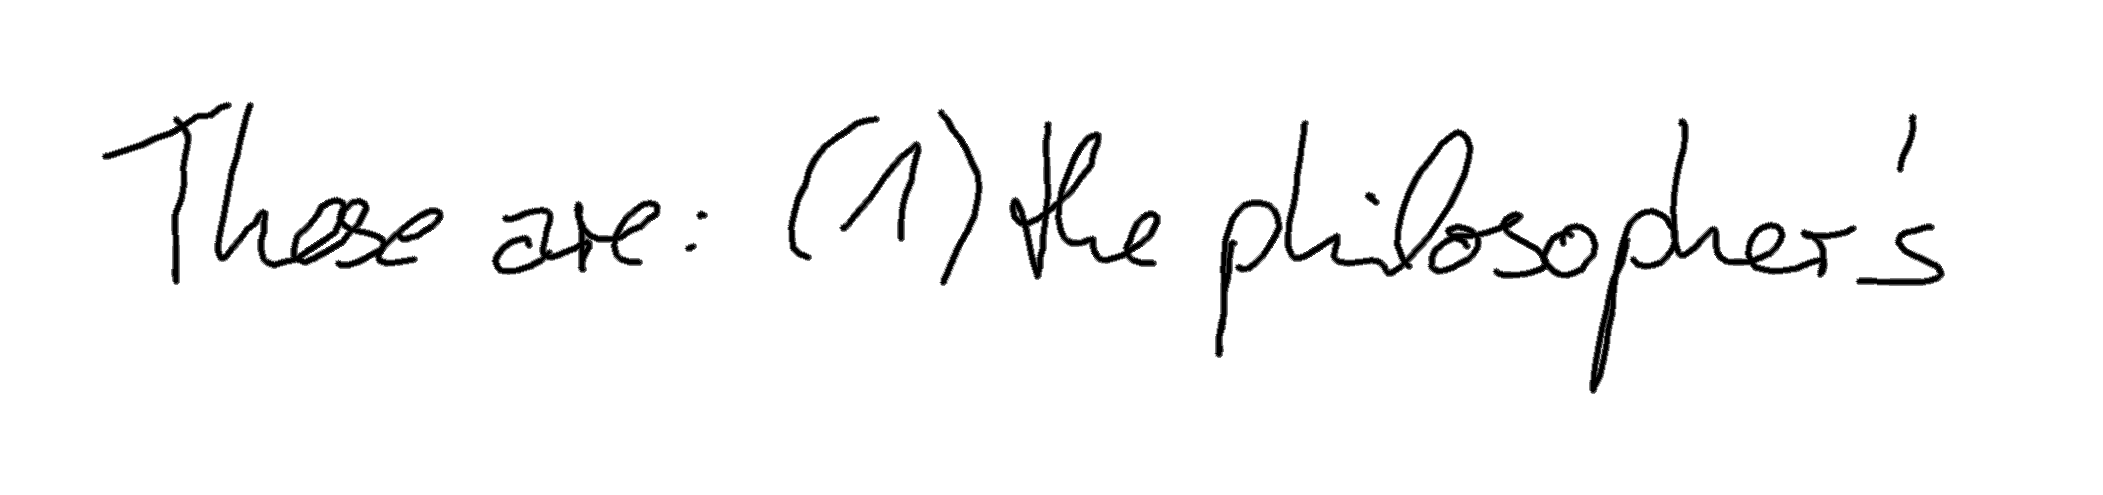 These are: (1) the philosopher's